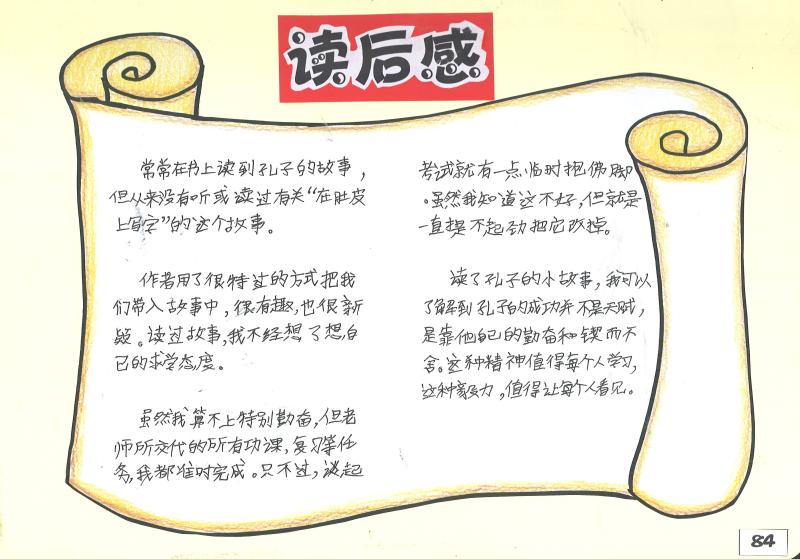 读后感
常常在书上读到孔子的故事，
但从来没有听或读过有关“在肚皮
上写字”的这个故事。
作者用了很特过的方式把我
们带入故事中，很有趣，也很新
疑。读过故事，我不经想了想自
已的求学态度。
虽然我算不上特别勤奋，但老
师所交代的所有功课，复习等任
务，我都准时完成。只不过，谈起
考试就有一点临时抱佛脚
。虽然我知道这不好，但就是
一直提不起劲把它改掉。
读了孔子的小故事，我可以
了解到孔子的成功并不是天赋，
是靠他自己的勤奋和锲而不
舍。这种精神值得每个人学习，
这种毅力，值得让每个人看见。
84